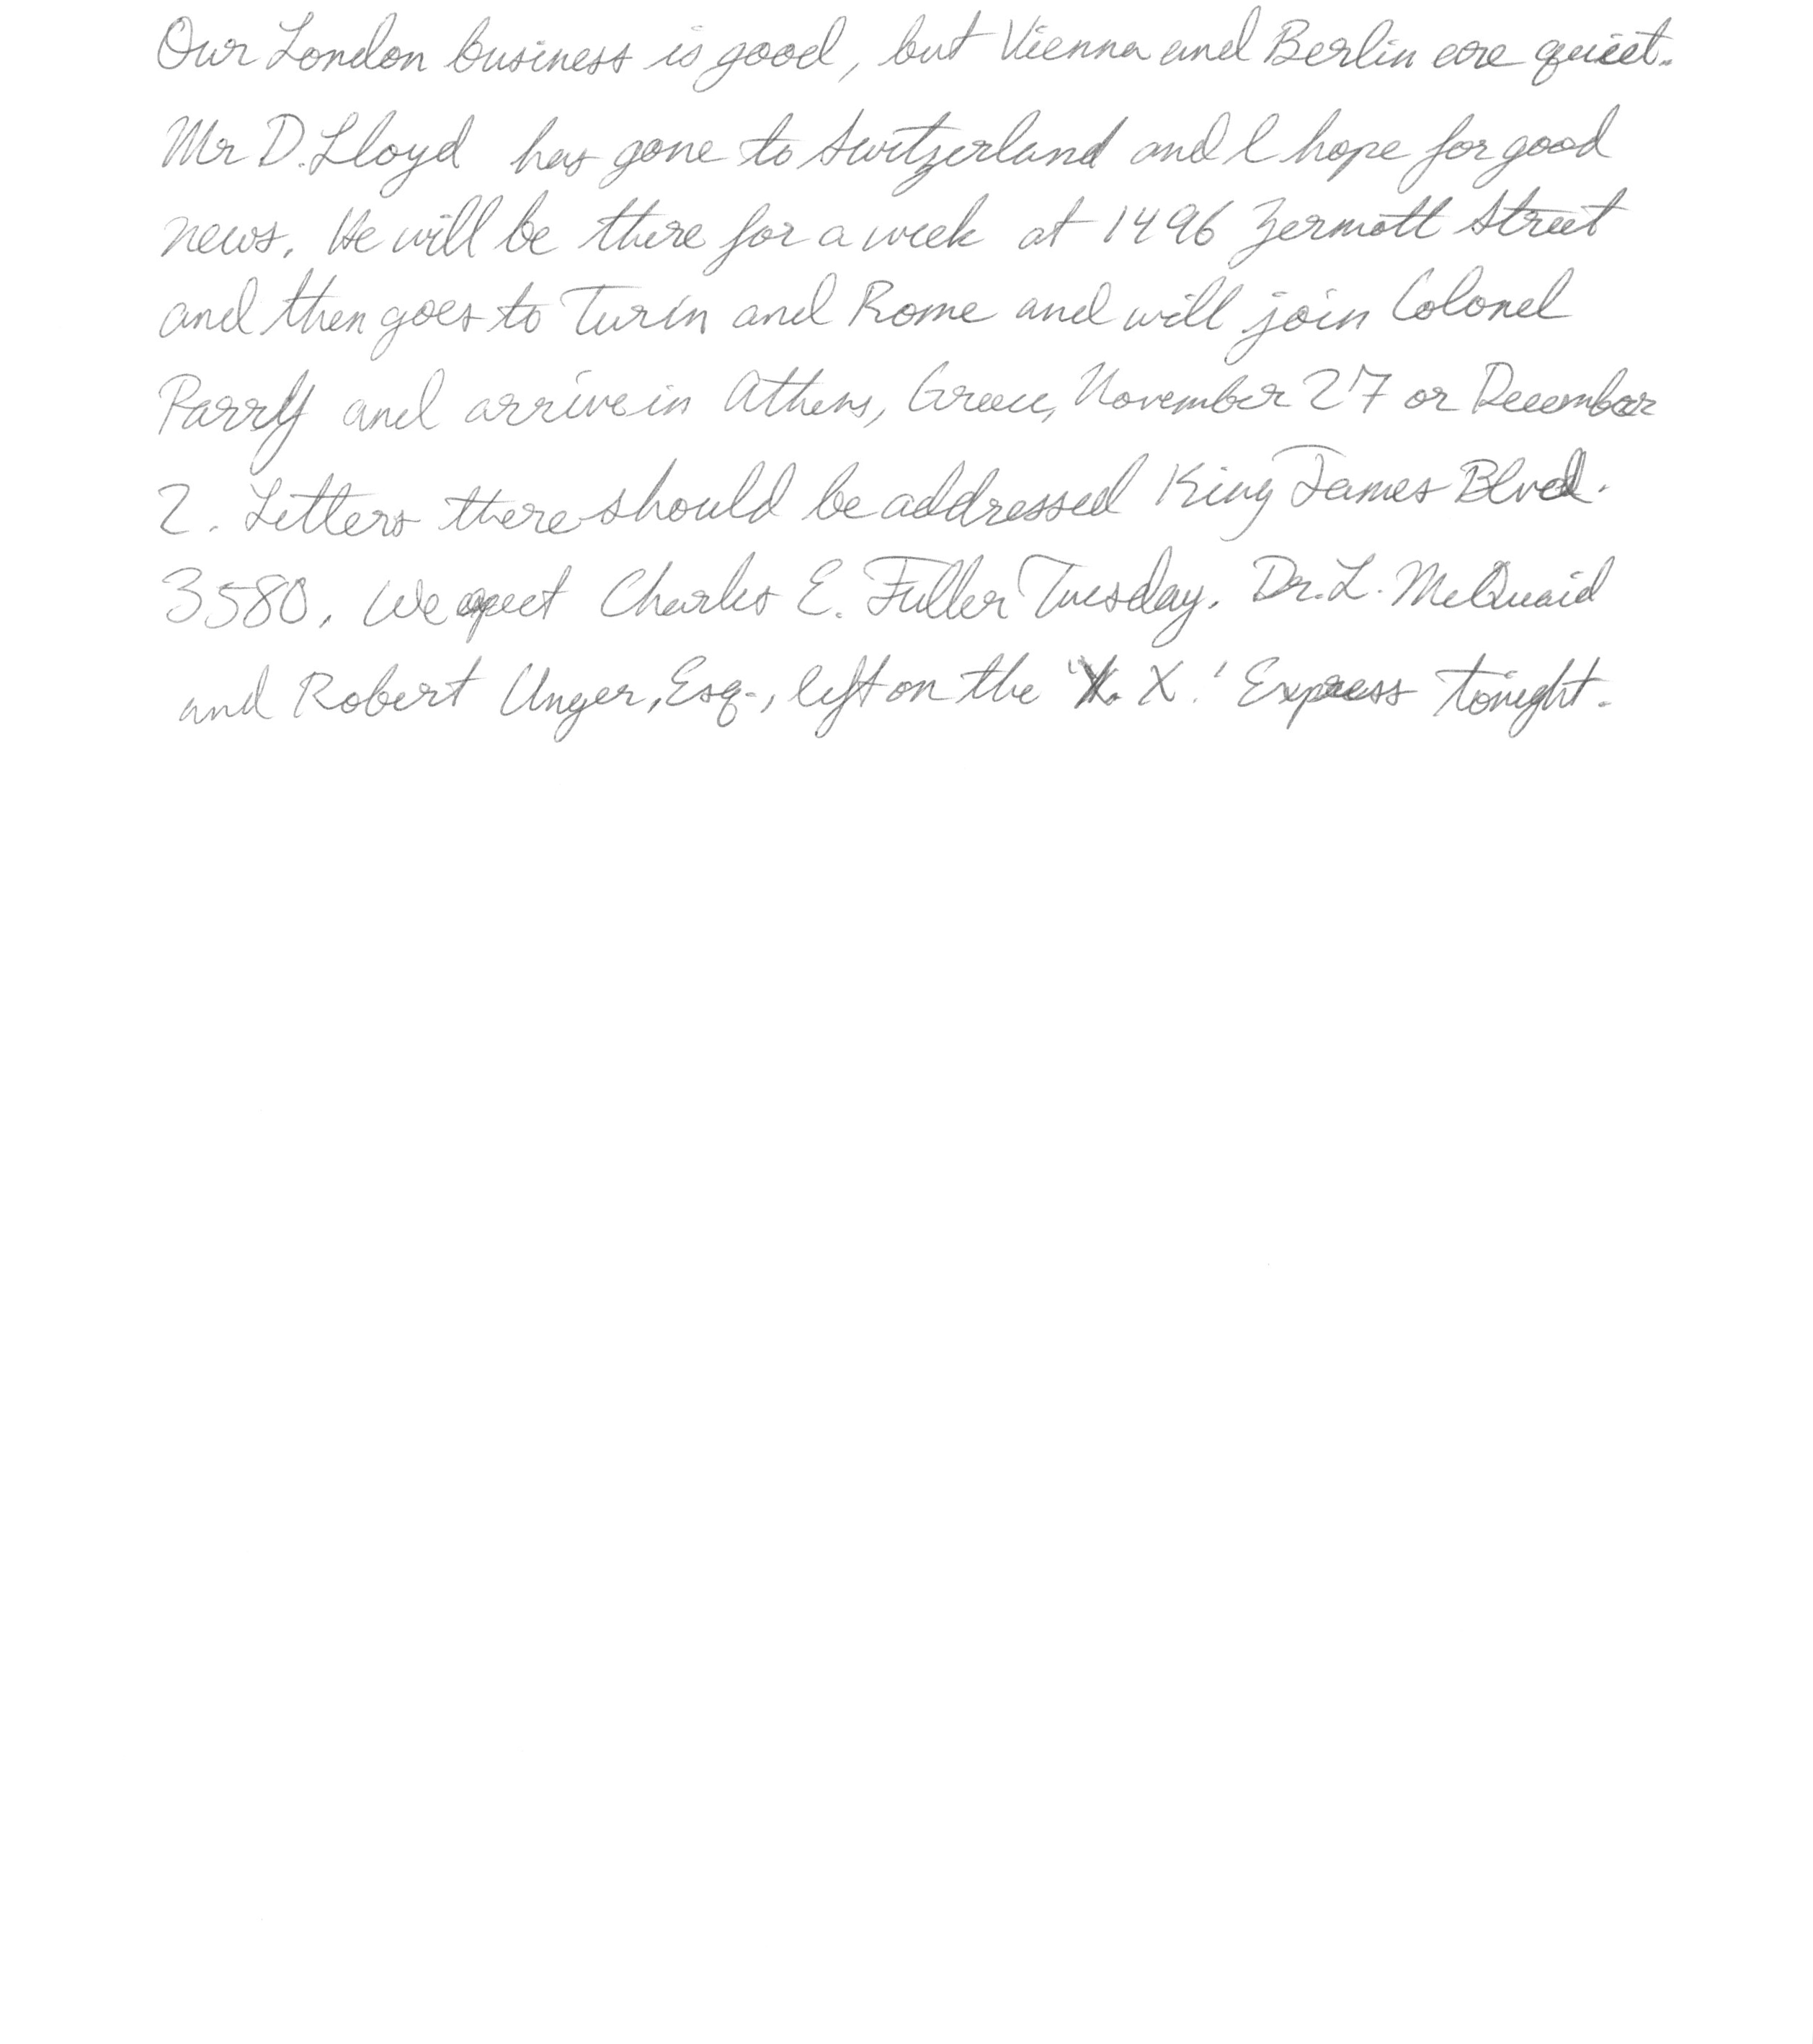 Our London business is good, but Vienna and Berlin are quiet.
Mr D. Lloyd has gone to Switzerland and I hope for good
news. He will be there for a week at 1496 Zermott Street
and then goes to Turin and Rome and will join Colonel
Parry and arrive in Athens, Greece, November 27 or December
2. Letters there should be addressed King James Blvd.
3580. We expect Charles E. Fuller Tuesday. Dr. L. McQuaid
and Robert Unger, Esq., left on the 'X. X.' Express tonight.